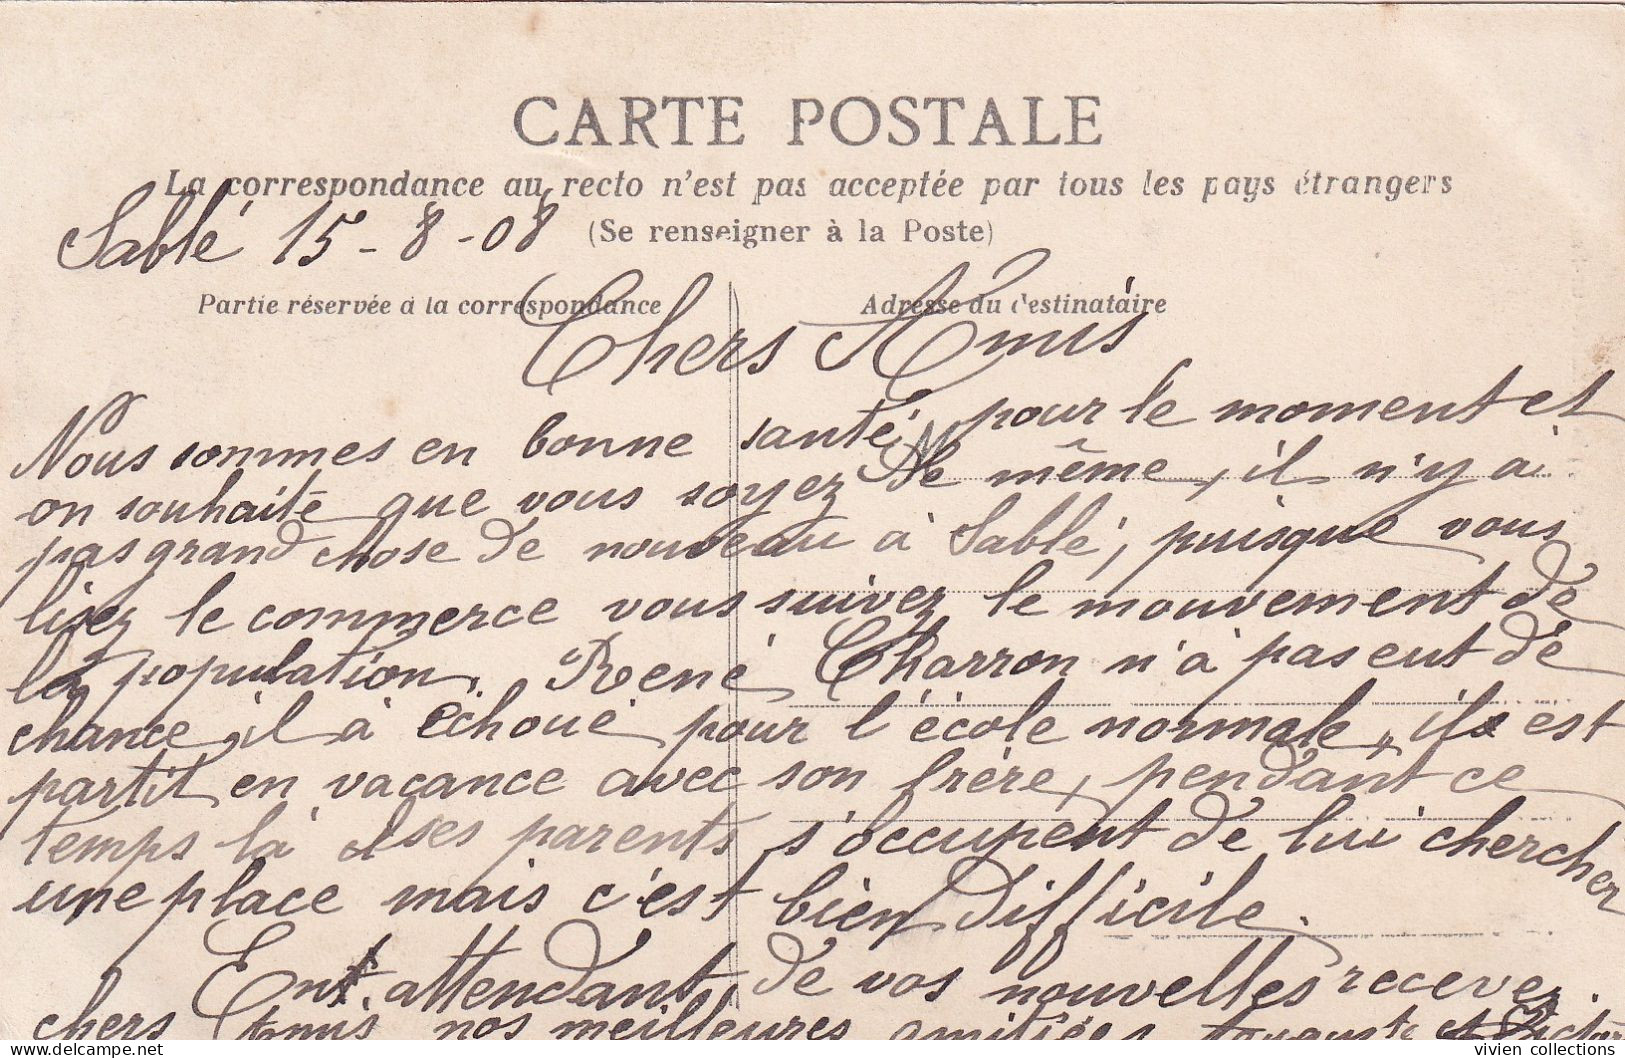 CARTE POSTALE
La correspondance au recto n'est pas acceptée par tous les pays étrangers
(Se renseigner à la Poste)
Sablé 15-8-08
Partie réservée à la correspondance
Adresse du destinataire
Chers Amis
Nous sommes en bonne santé pour le moment et
on souhaite que vous soyez de même, il n'y à
pas grand chose de nouveau à Sablé, puisque vous
lisez le commerce vous suivez le mouvement de
la population. René Charron n'à pas eut de
chance, il à échoué pour l'école normale, il est
partit en vacance avec son frère, pendant ce
temps là ses parents s'occupent de lui chercher
une place mais c'est bien difficile.
Ent attendant de vos nouvelles recevez
chers amis nos meilleures amitiées Auguste et Victor
vivien collections